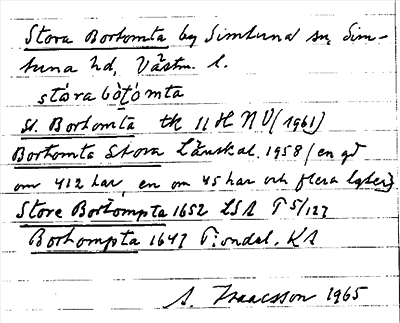 Stora Bortomta by Simtuna sn, Sim-
tuna hd, Västm. l.
stóra bòtómta
St. Bortomta tk 11 H NV (1961)
Bortomta Stora Länskal. 1958 (en gd
om 412 har, en om 45 har och flera lghter)
Store Bortompta 1652 LSA T 5/127
Bortompta 1647 Tiondel. KA
A. Isaacsson 1965